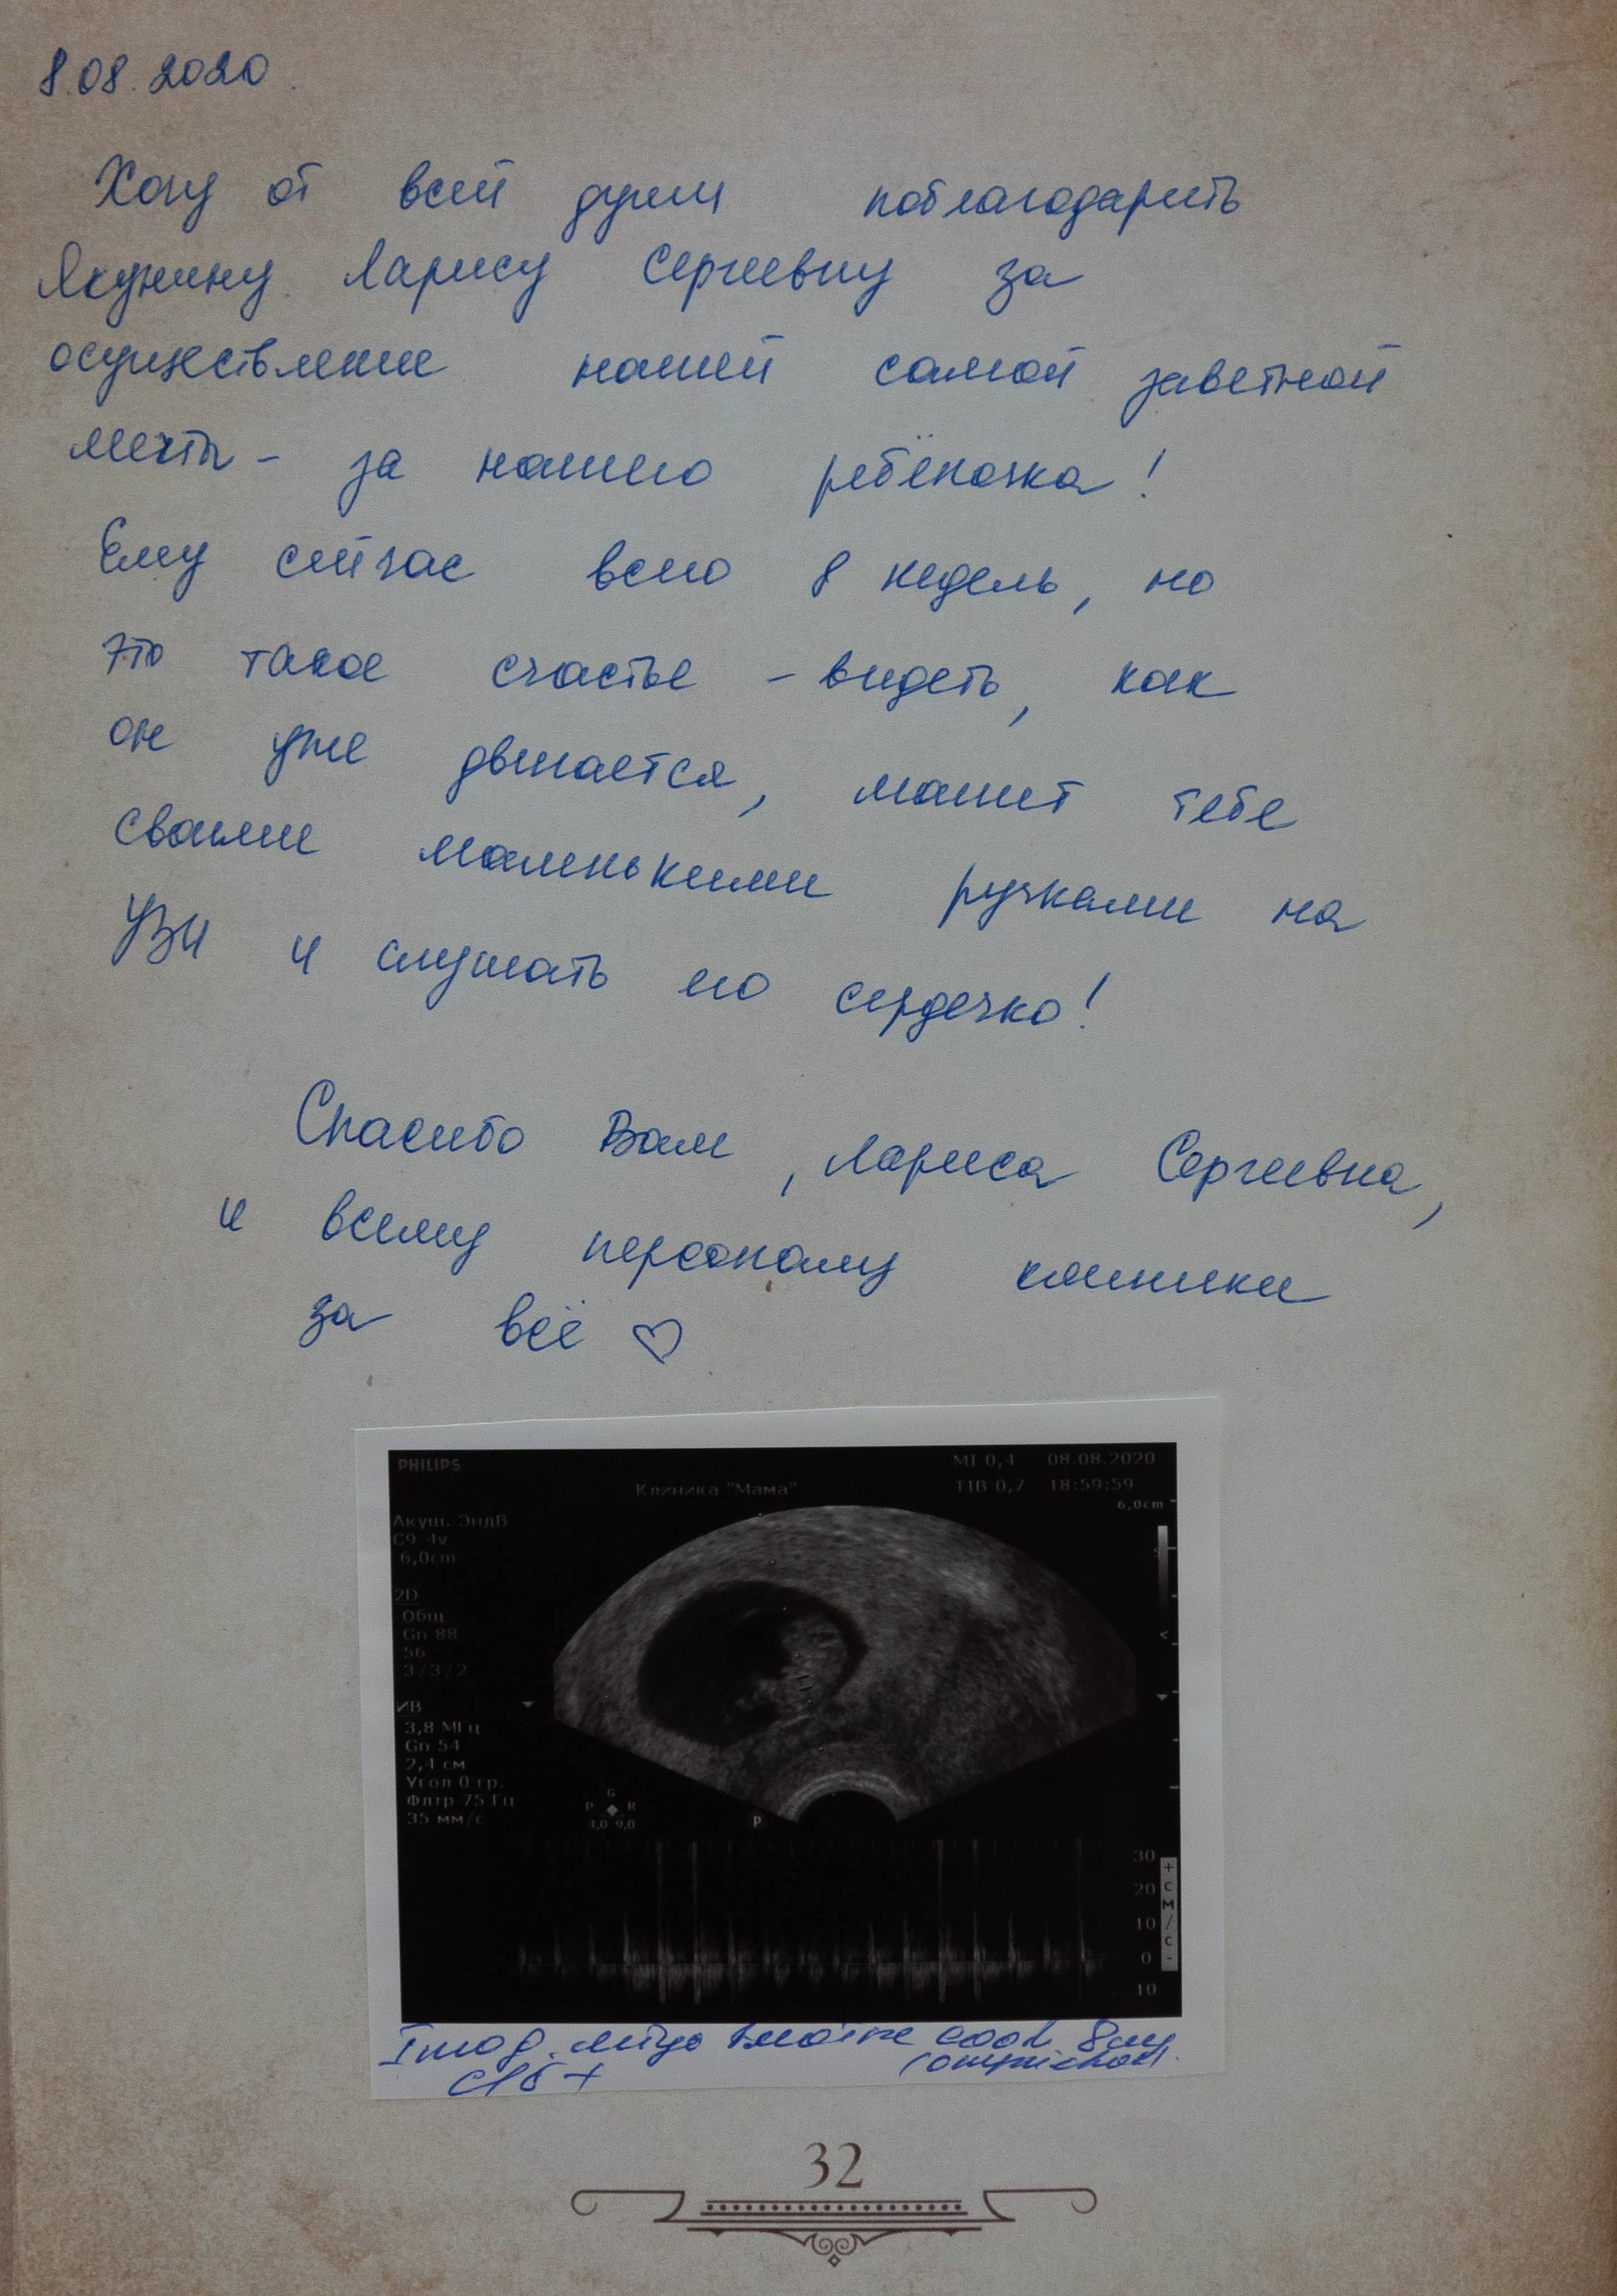 8.08.2020
Хочу от всей души поблагодарить
Якунину Ларису Сергеевну за
осуществление нашей самой заветной
мечты - за нашего ребёночка!
Ему сейчас всего 8 недель, но
это такое счастье - видеть, как
он уже двигается, машет тебе
своими маленькими ручками на
УЗИ и слушать его сердечко!
Спасибо Вам, Лариса Сергеевна,
и всему персоналу клиники
за всё ♡
PHILIPS
MI 0,4 08.08.2020
Клиника "Мама"
TIB 0,7 18:59:59
6,0cm
Акуш. ЭндВ
C9-4v
6,0cm
2D
Общ
Gn 88
56
3/3/2
ИВ
3,8 МГц
Gn 54
2,4 см
Угол 0 гр.
Флтр 75 Гц
35 мм/с
G
P R
4,0 9,0
P
30
20
10
0
10
+
с
м
/
с
-
I
8
+
32